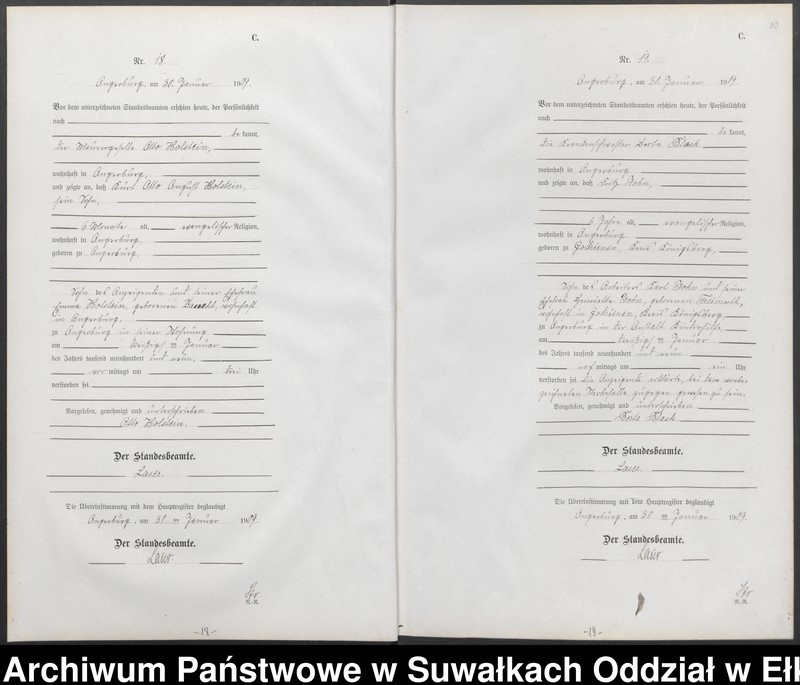 C.
Nr. 18.
Angerburg, am 30. Januar 1909.
Vor dem unterzeichneten Standesbeamten erschien heute, der Persönlichkeit
nach
be kannt,
der Maurergeselle Otto Holstein,
wohnhaft in Angerburg,
und zeigte an, daß Kurt Otto August Holstein,
sein Sohn,
6 Monate alt, evangelischer Religion,
wohnhaft in Angerburg,
geboren zu Angerburg,
Sohn des Anzeigenden und seiner Ehefrau
Holstein, geborenen wohnhaft
in Angerburg,
zu Angerburg in seiner Wohnung
am dreißigsten Januar
des Jahres tausend neunhundert und neun,
vor mittags um drei Uhr
verstorben sei.
Vorgelesen, genehmigt und unterschrieben
Otto Holstein.
Der Standesbeamte.
Laser.
Die Übereinstimmung mit dem Hauptregister beglaubigt
Angerburg, am 30ten Januar 1909.
Der Standesbeamte.
Laser.
-18-
80
C.
Nr. 19.
Angerburg, am 30. Januar 1909.
Vor dem unterzeichneten Standesbeamten erschien heute, der Persönlichkeit
nach
be kannt,
die Krankenschwester Berta Block
wohnhaft in Angerburg
und zeigte an, daß Fritz John,
Jahre alt, evangelischer Religion,
wohnhaft in Angerburg
geboren zu Kreis Königsberg,
Sohn des Arbeiters Karl John und seiner
Ehefrau Henriette John, geborenen
wohnhaft in Kreis Königsberg,
zu Angerburg in der Anstalt
am dreißigsten Januar
des Jahres tausend neunhundert und neun
mittags um ein Uhr
verstorben sei. Die Anzeigende erklärte, bei dem vorbe-
zeichneten Sterbefalle zugegen gewesen zu sein.
Vorgelesen, genehmigt und unterschrieben
Berta Block.
Der Standesbeamte.
Laser.
Die Übereinstimmung mit dem Hauptregister beglaubigt
Angerburg, am 30ten Januar 1909.
Der Standesbeamte.
Laser.
-19-
Archiwum Państwowe w Suwałkach Oddział w Ełk